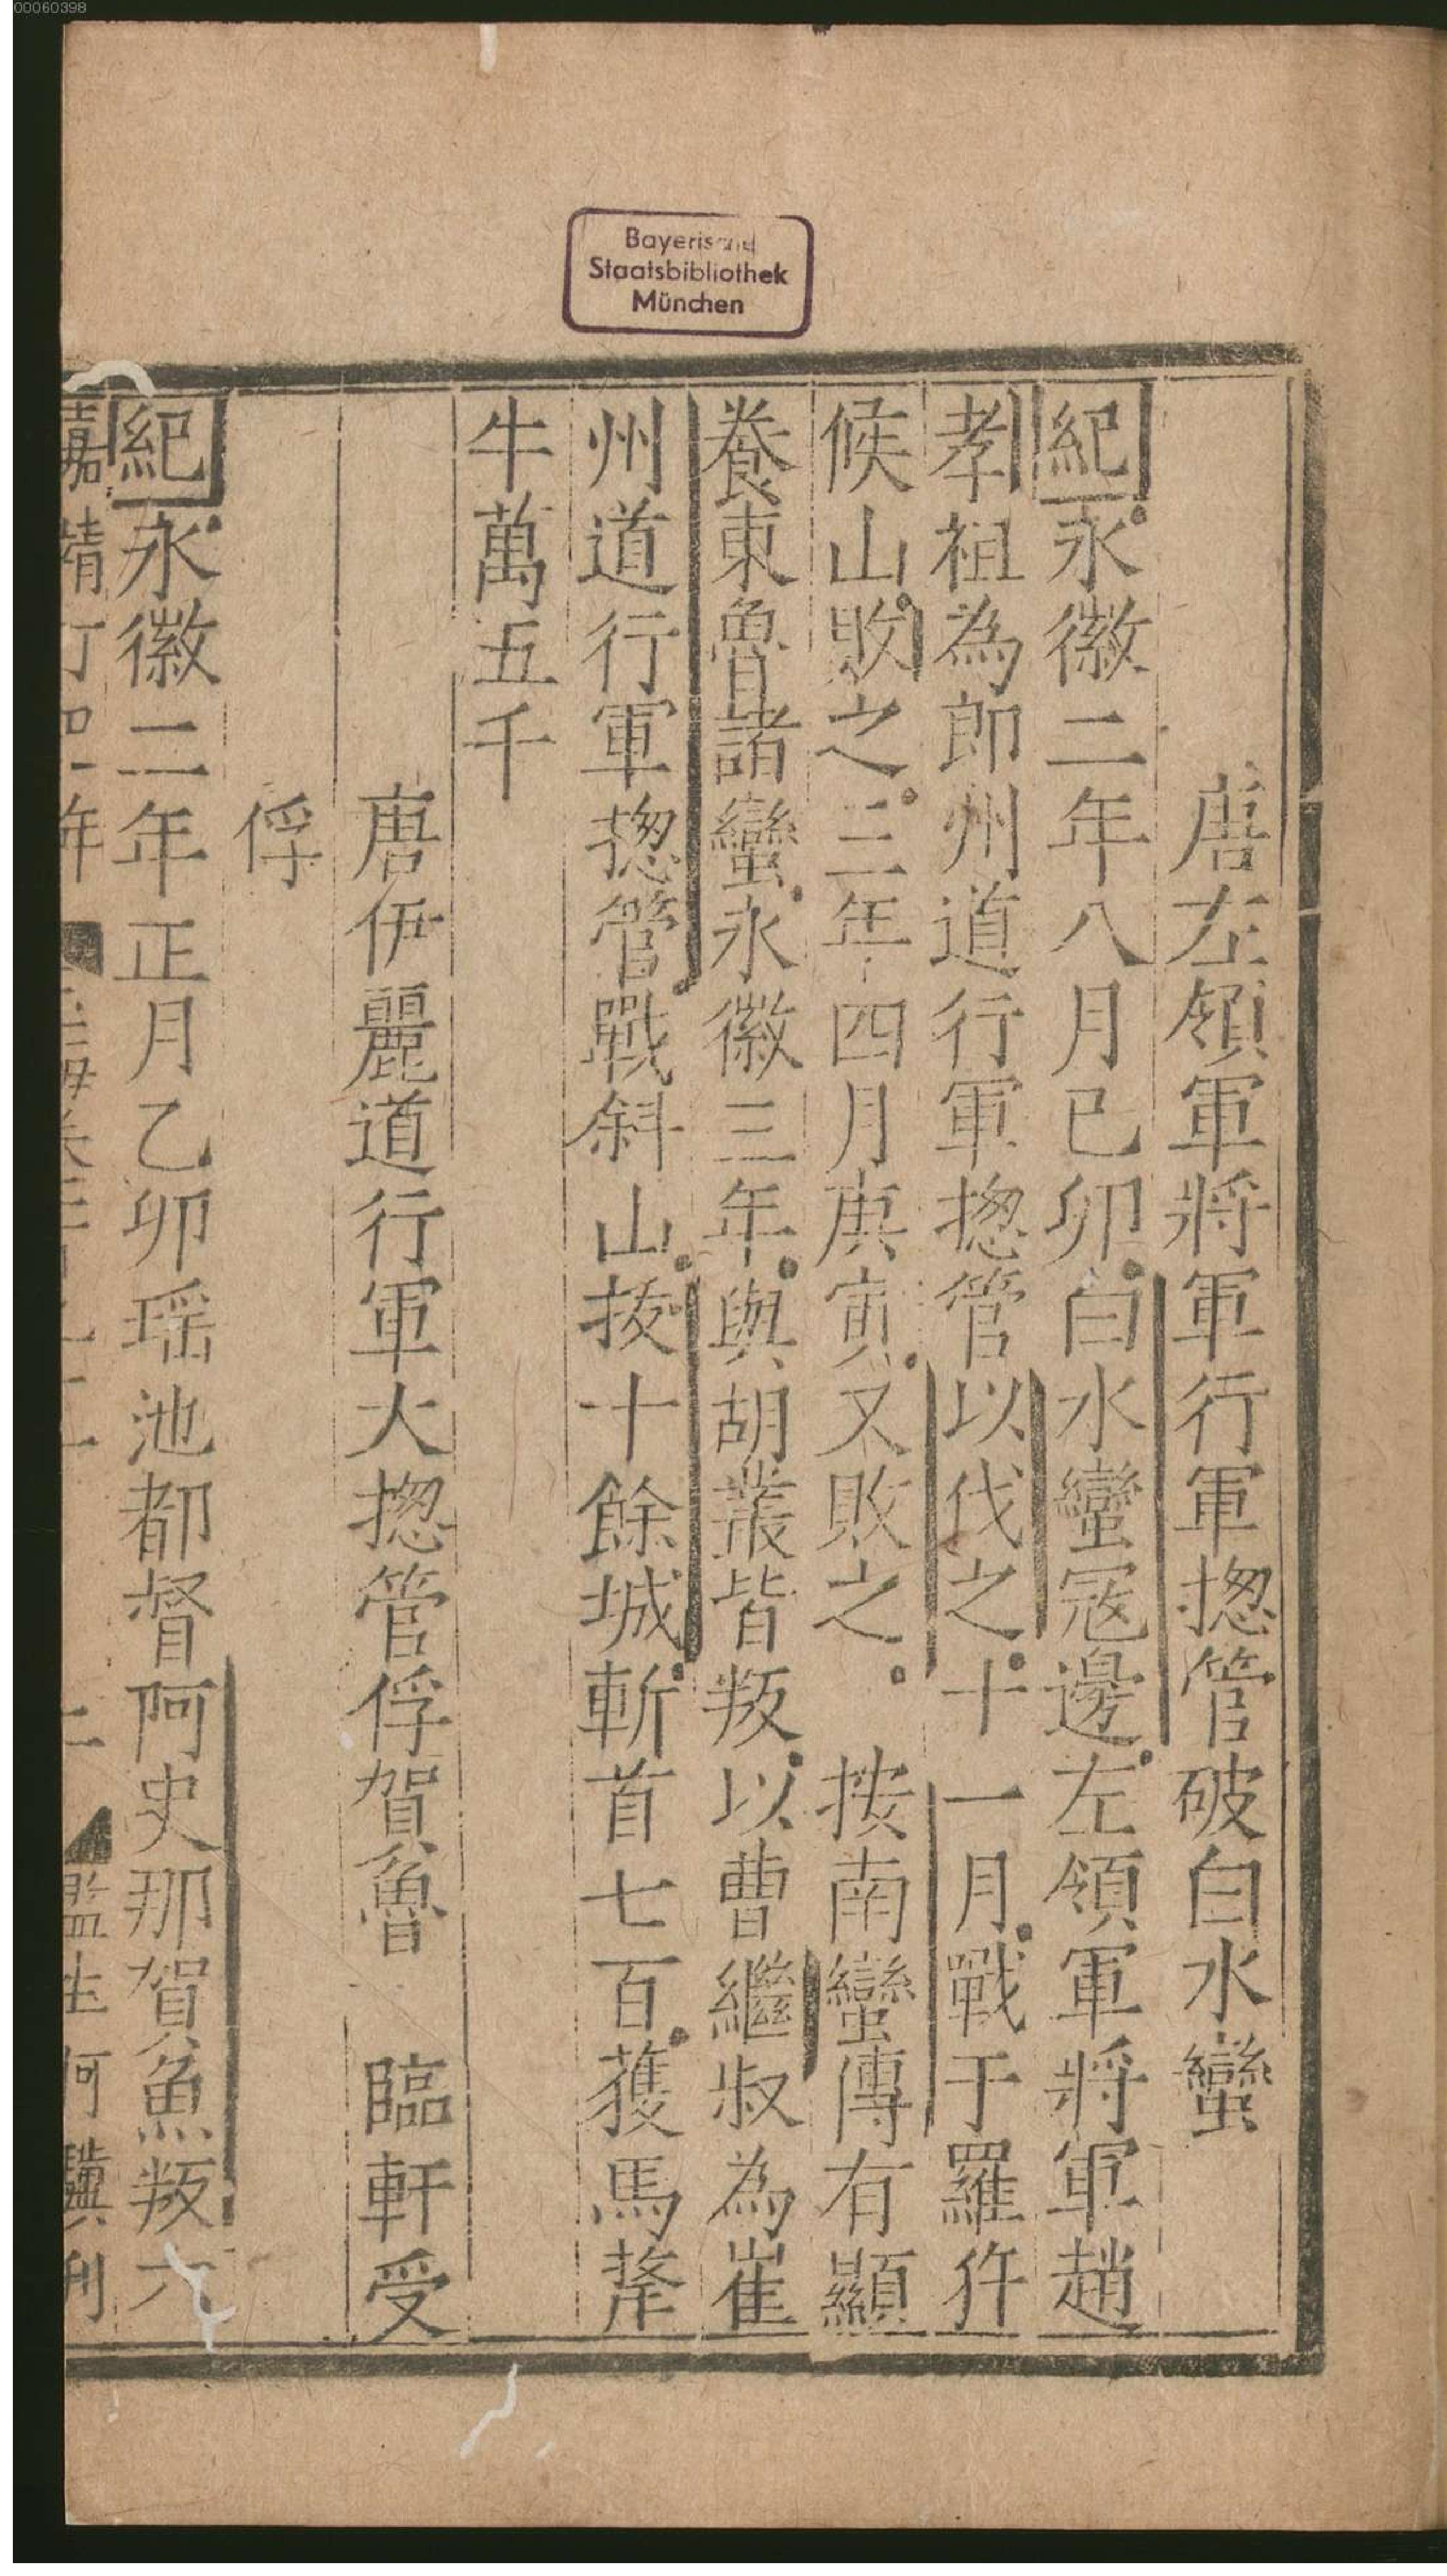 00060398
Bayerische
Staatsbibliothek
München
唐左領軍將軍行軍揔管破白水蠻
紀永徽二年八月已卯白水蠻寇邊左領軍將軍趙
孝祖為郎州道行軍揔管以伐之十一月戰于羅仵
候山敗之三年四月庚寅又敗之 按南蠻傳有顯
養東魯諸蠻永徽三年與胡叢皆叛以曹繼叔為嶲
州道行軍揔管戰斜山拔十餘城斬首七百獲馬犛
牛萬五千
唐伊麗道行軍大揔管俘賀魯 臨軒受
俘
紀永徽二年正月乙卯瑶池都督阿史那賀魯叛六
嘉靖丁巳年 玉海卷 監生何驥刊